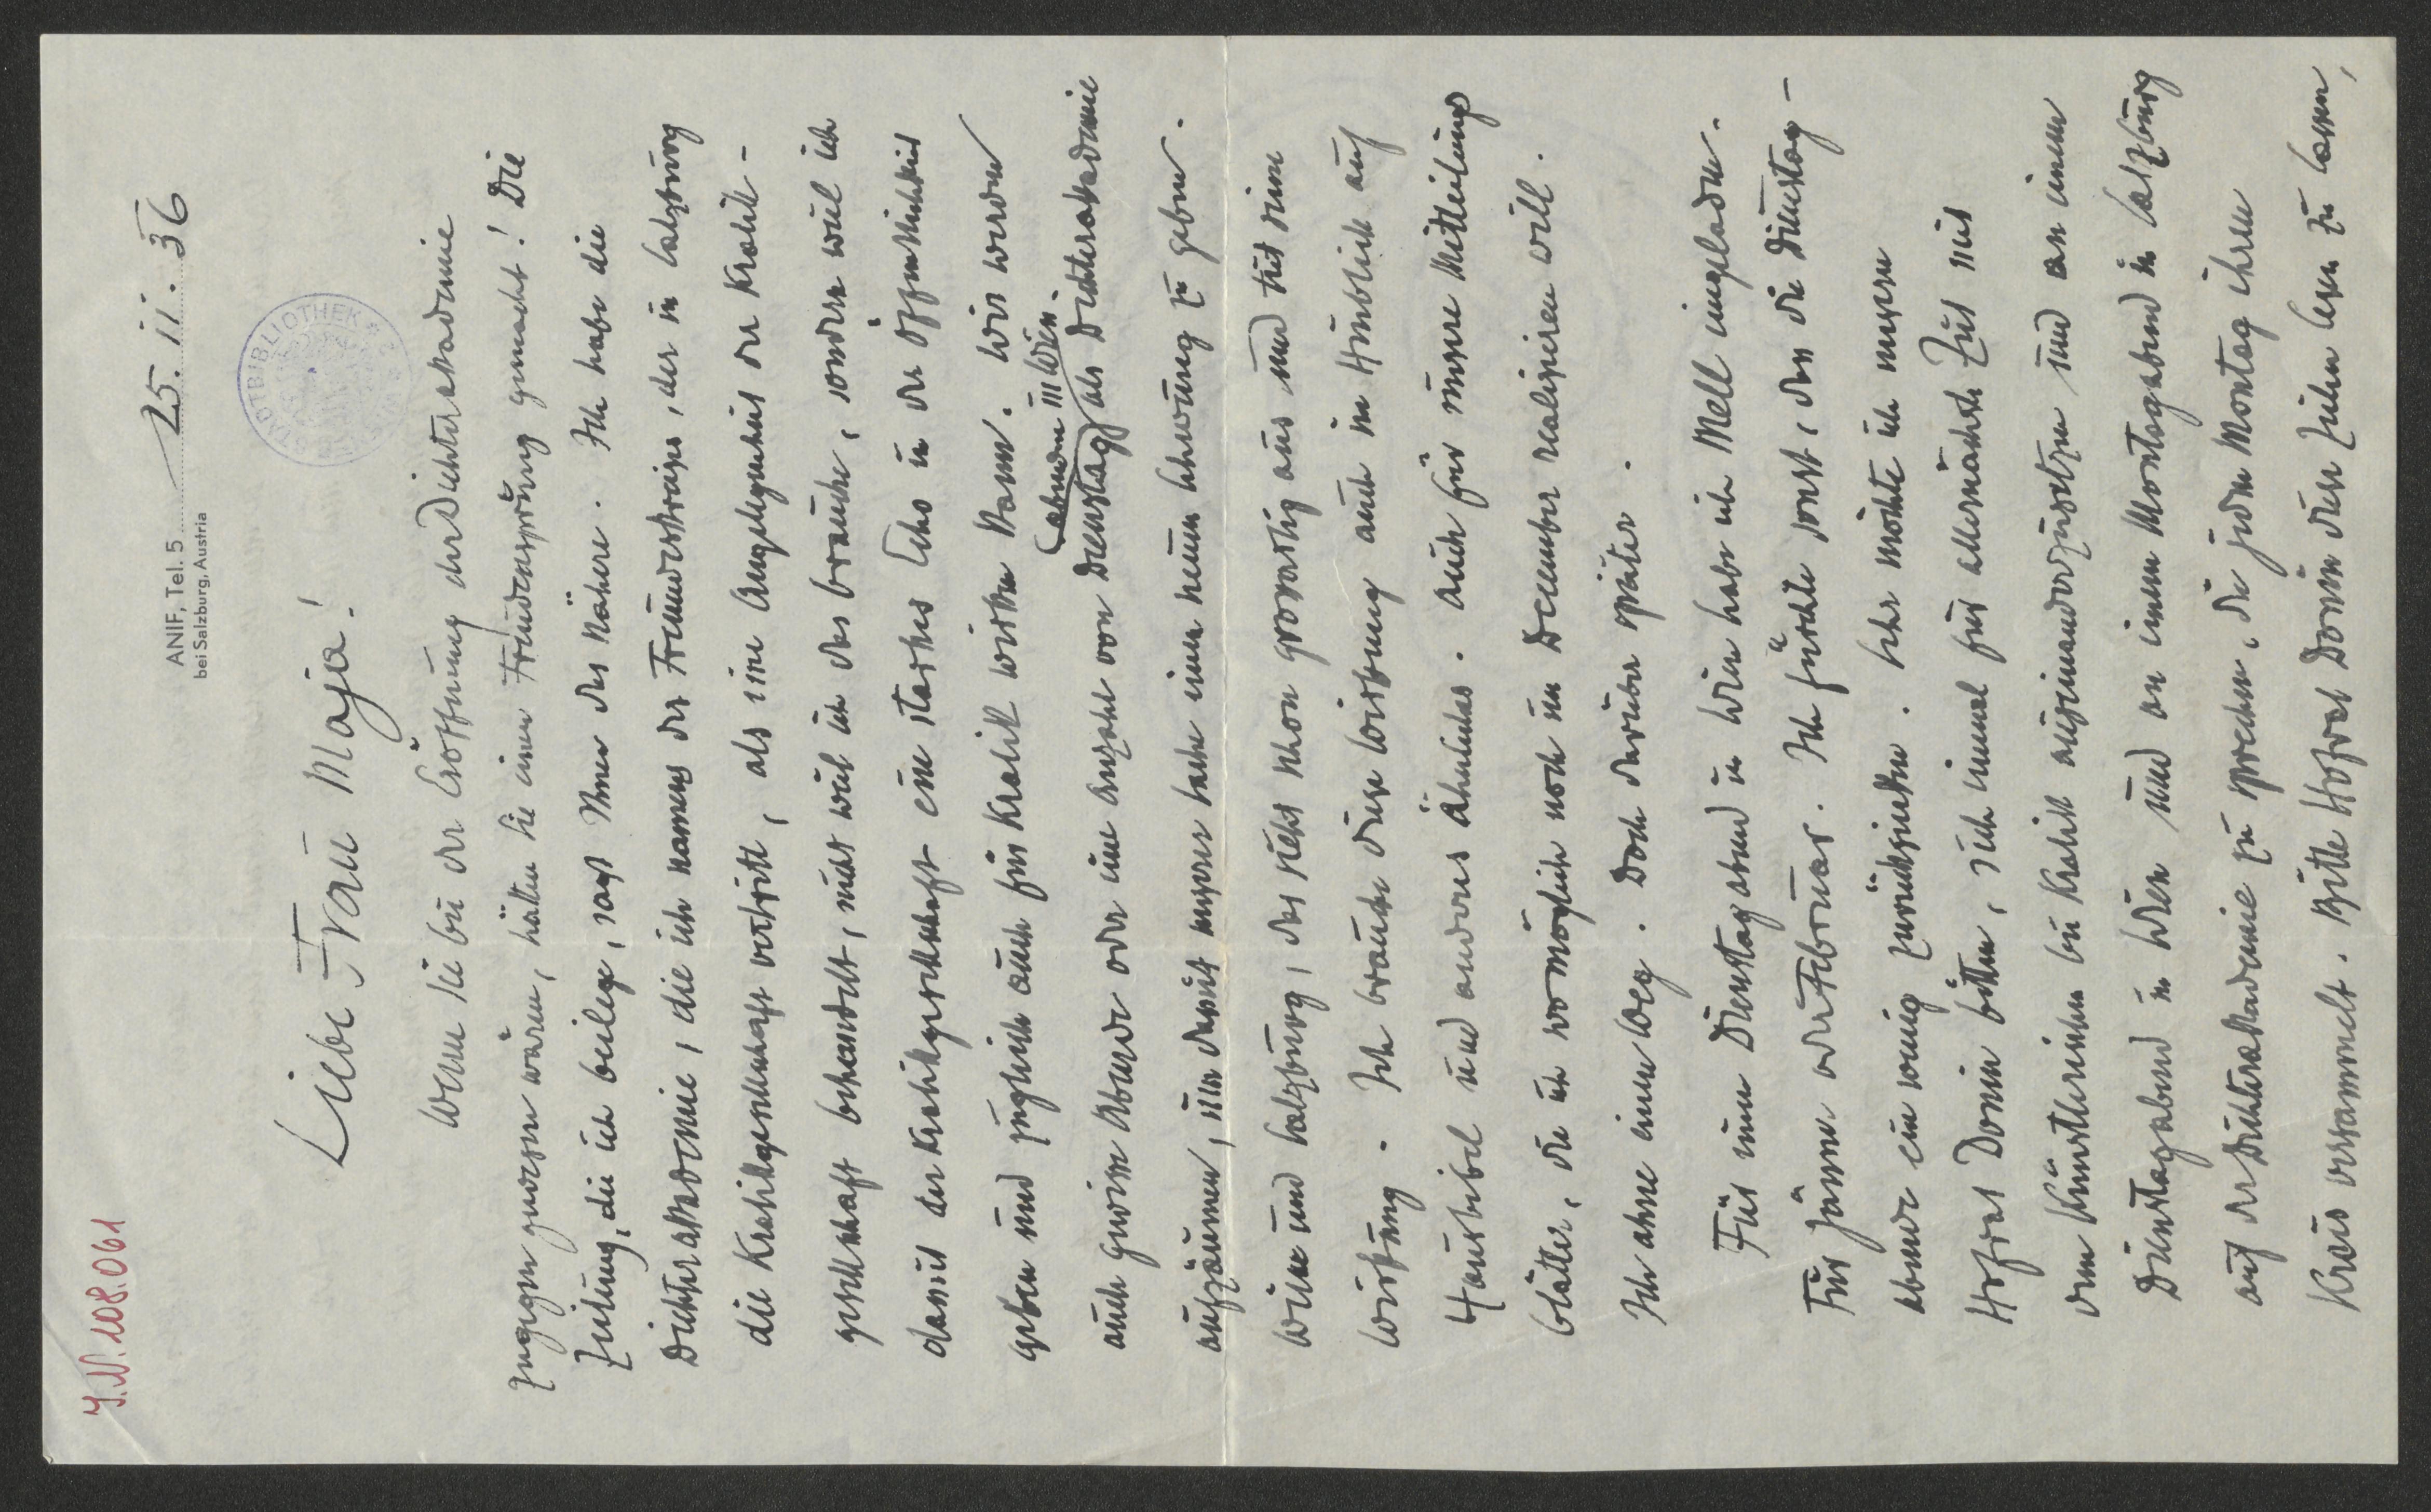 J.N. 108.061
ANIF, Tel. 5
bei Salzburg, Austria
25. 11. 36
STADTBIBLIOTHEK
Liebe Frau Maja!
Wenn Sie bei der Eröffnung der Dichterakademie
zugegen gewesen wären, hätten Sie einen Freudensprung gemacht! Die
Zeitung, die ich beilege, sagt Ihnen das Nähere. Ich habe die
Dichterakademie, die ich namens des Freundeskreises, der in Salzburg
die Kralikgesellschaft vertritt, als eine Angelegenheit der Kralik-
gesellschaft behandelt, nicht weil ich das brauche, sondern weil ich
damit der Kralikgesellschaft ein starkes Echo in der Öffentlichkeit
geben und zugleich auch für Kralik wirken kann. Wir werden
auch gewisse Abende oder eine Anzahl von Dienstag
abenden in Wien
als Dichterakademie
aufzäumen, um damit unserer Sache einen neuen Schwung zu geben.
Wien und Salzburg, das sieht schon großartig aus und tut seine
Wirkung. Ich brauche diese Wirkung auch im Hinblick auf
Hausbibel und anderes Ähnliches. Auch für unsere Mitteilungs
blätter, die ich womöglich noch im Dezember realisieren will.
Ich ahne einen Weg. Doch darüber später.
Für einen Dienstagabend in Wien habe ich Mell eingeladen.
Für Jänner oder Februar. Ich fürchte sonst, daß die Dienstag-
abende ein wenig zurücksinken. Sehr möchte ich unseren
Hofrat Donin bitten, sich einmal für allernächste Zeit mit
den Künstlerischen bei Kralik auseinanderzusetzen und an einem
Dienstagabend in Wien und an einem Montagabend in Salzburg
auf der Dichterakademie zu sprechen, die jeden Montag ihren
Kreis versammelt. Bitte Hofrat Donin diese Zeilen lesen zu lassen,